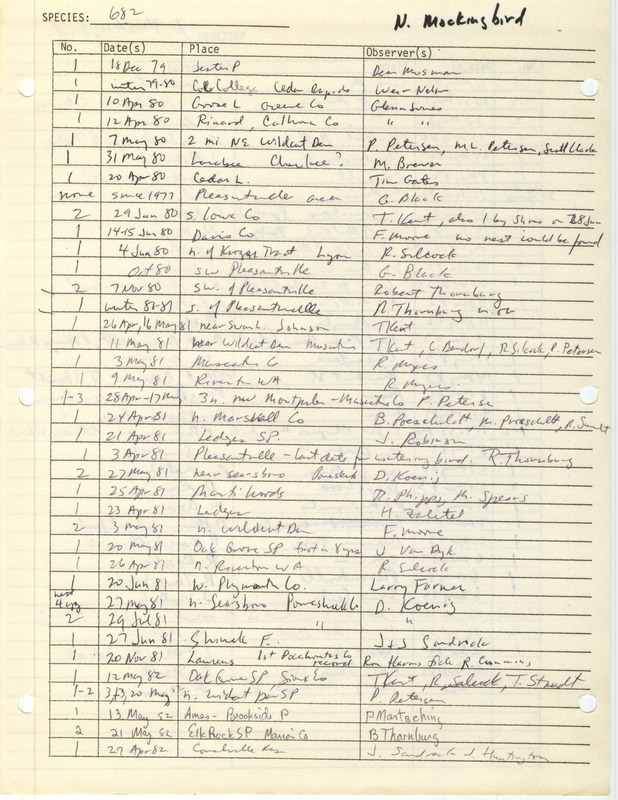 SPECIES: 682 N. Mockingbird
No. Date(s) Place Observer(s)
1 18 Dec 79 Jester P Dean Mosman
1 winter 79-80 Coe College Cedar Rapids Weir Nelson
1 10 Apr 80 Goose L Greene Co Glenn Jones
1 12 Apr 80 Rinard, Calhoun Co " "
1 7 May 80 2 mi NE Wildcat Den P. Petersen, M.L. Petersen,
1 31 May 80 Larrabee Cherokee? M. Brewer
1 20 Apr 80 Cedar L. Tim Gates
none since 1977 Pleasantville area G. Black
2 29 Jun 80 s. Iowa Co T. Kent, also 1 by on 28 Jun
1 14-15 Jun 80 Davis Co F. Moore no nest could be found
1 4 Jun 80 n. of Kurger Tract Lyon R. Silcock
1 Oct 80 sw Pleasantville G. Black
2 7 Nov 80 sw. of Pleasantville Robert Thornburg
1 winter 80-81 s. of Pleasantville R. Thornburg
1 26 Apr, 16 May 81 near Swan L. Johnson TKent
1 11 May 81 near Wildcat Den Muscatine TKent, C. Bendorf, R. Silcock, P. Petersen
1 3 May 81 Muscatine Co R. Myers
1 9 May 81 Riverton WA R. Myers
1-3 28 Apr-17 May 3 n. nw Montpelier - Muscatine Co P. Petersen
1 24 Apr 81 n. Marshall Co B. Proescholdt, M. Proescholdt,
1 21 Apr 81 Ledges SP. J. Robinson
1 3 Apr 81 Pleasantville - last date for wintering bird. R. Thornburg
2 27 May 81 near Searsboro Poweshiek D. Koenig
1 25 Apr 81 Marti Woods R. Phipps, M. Spears
1 23 Apr 81 Ledges H. Zaletel
2 3 May 81 n. Wildcat Den F. Moore
1 20 May 81 Oak Grove SP first in 8 yrs J Van Dyk
1 26 Apr 81 n. Riverton WA R. Silcock
1 20 Jun 81 w. Plymouth Co. Larry Farmer
nest 4 egg 27 May 81 n. Searsboro Poweshiek Co D. Koenig
2 29 Jul 81 " "
1 27 Jun 81 Shimek F. J+J Sandrock
1 20 Nov 81 Laurens 1st Pocahontas Co record Ron Harms fide R. Cummins
1 12 May 82 Oak Grove SP Sioux Co TKent, R. Silcock, T. Staudt
1-2 3,13,20 May n. Wildcat Den SP P. Petersen
1 13 May 82 Ames - Brookside P P Martsching
2 21 May 82 Elk Rock SP Marion Co B Thornburg
1 27 Apr 82 Coralville Res J. Sandrock J. Huntington